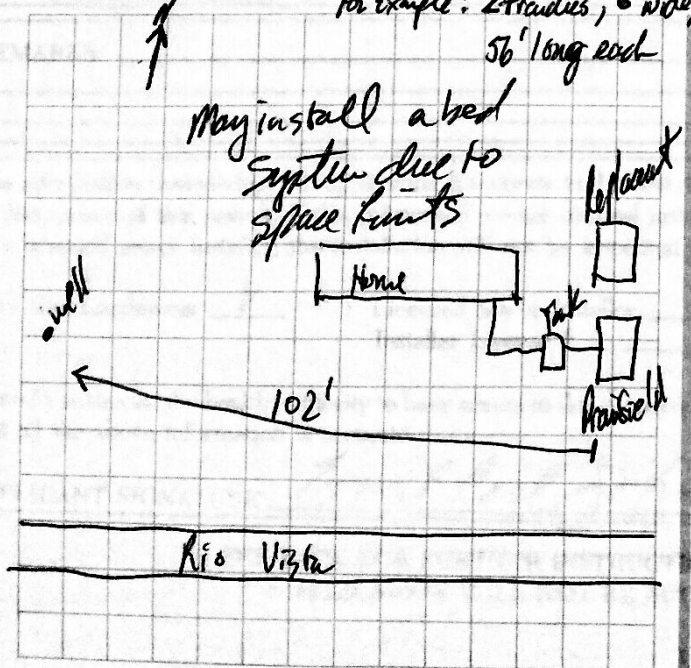 for example: 2 trenches, 6' wide,
56' long each
May install a bed
System due to
space limits
Replacement
Home
Tank
well
102'
Drainfield
Rio Vista